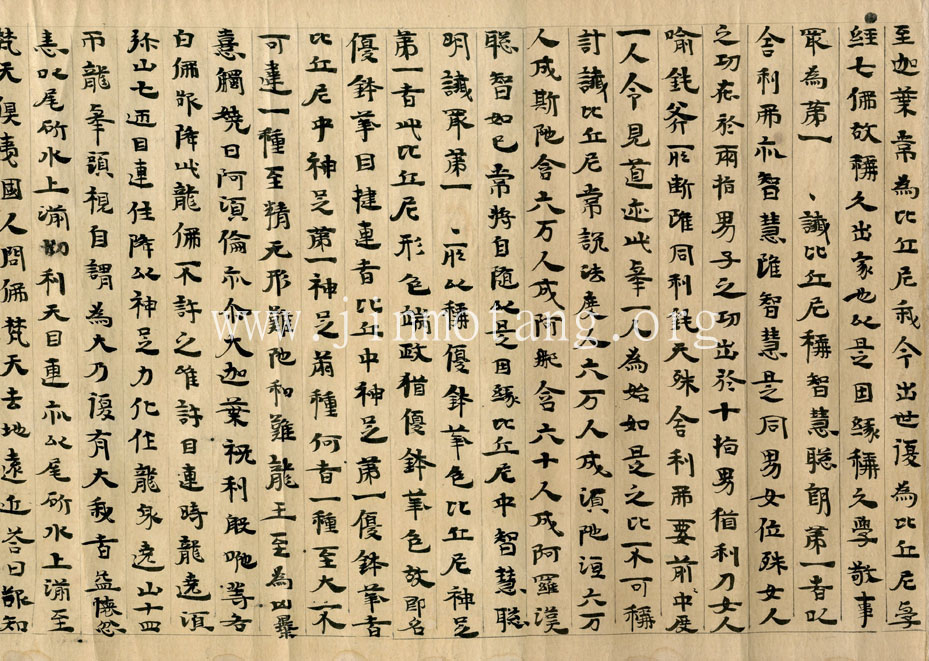 至迦葉常為比丘尼我今出世復為比丘尼每
經七佛故稱久出家也以是因緣稱之學敬事
眾為第一、識比丘尼稱智慧聰朗第一者以
舍利弗亦智慧唯智慧是同男女位殊女人
之功在於兩指男子之功出於十指男猶利刀女人
喻鈍斧所斷雖同利鈍矢殊舍利弗要前中度
一人令見道迹此舉一人為始如是之比不可稱
計識比丘尼常說法度六万人成湏陁洹六万
人成斯陁含六万人成阿那含六十人成阿羅漢
聰智如已常將自隨以是因緣比丘尼中智慧聰
明識眾第一、所以稱優鉢華色比丘尼神足
第一者此比丘尼形色端政猶優鉢華色故即名
優鉢華目揵連者比丘中神足第一優鉢華者
比丘尼中神足第一神足有兩種何者一種至大不
可達一種至精无形難陁和難龍王至為凶暴
憙觸嬈日阿湏倫亦尒大迦葉祝利般咃等各
白佛能降此龍佛不許之唯許目連時龍遶湏
弥山七迊目連往降以神足力化作龍身遶山十四
帀龍舉頭視自謂為大乃復有大我者益懷忿
恚以尾斫水上滿忉利天目連亦以尾斫水上滿至
梵天俱夷國人問佛梵天去地遠近荅曰能知
www.jinmotang.org